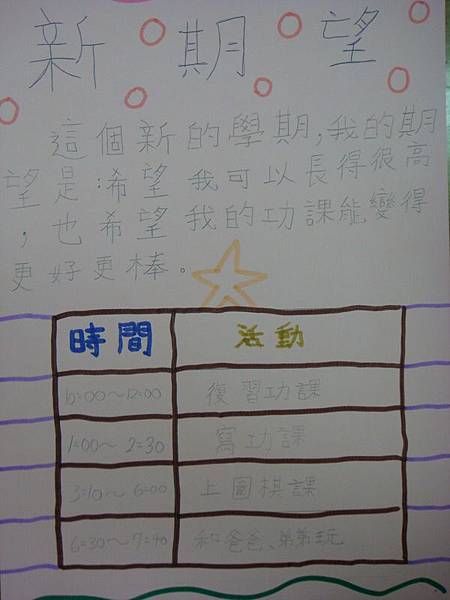 新期望
這個新的學期,我的期
望是:希望我可以長得很高
,也希望我的功課能變得
更好更棒。
時間 活動
10:00~12:00 復習功課
1:00~2:30 寫功課
3:10~6:00 上圍棋課
6:30~7:40 和爸爸、弟弟玩